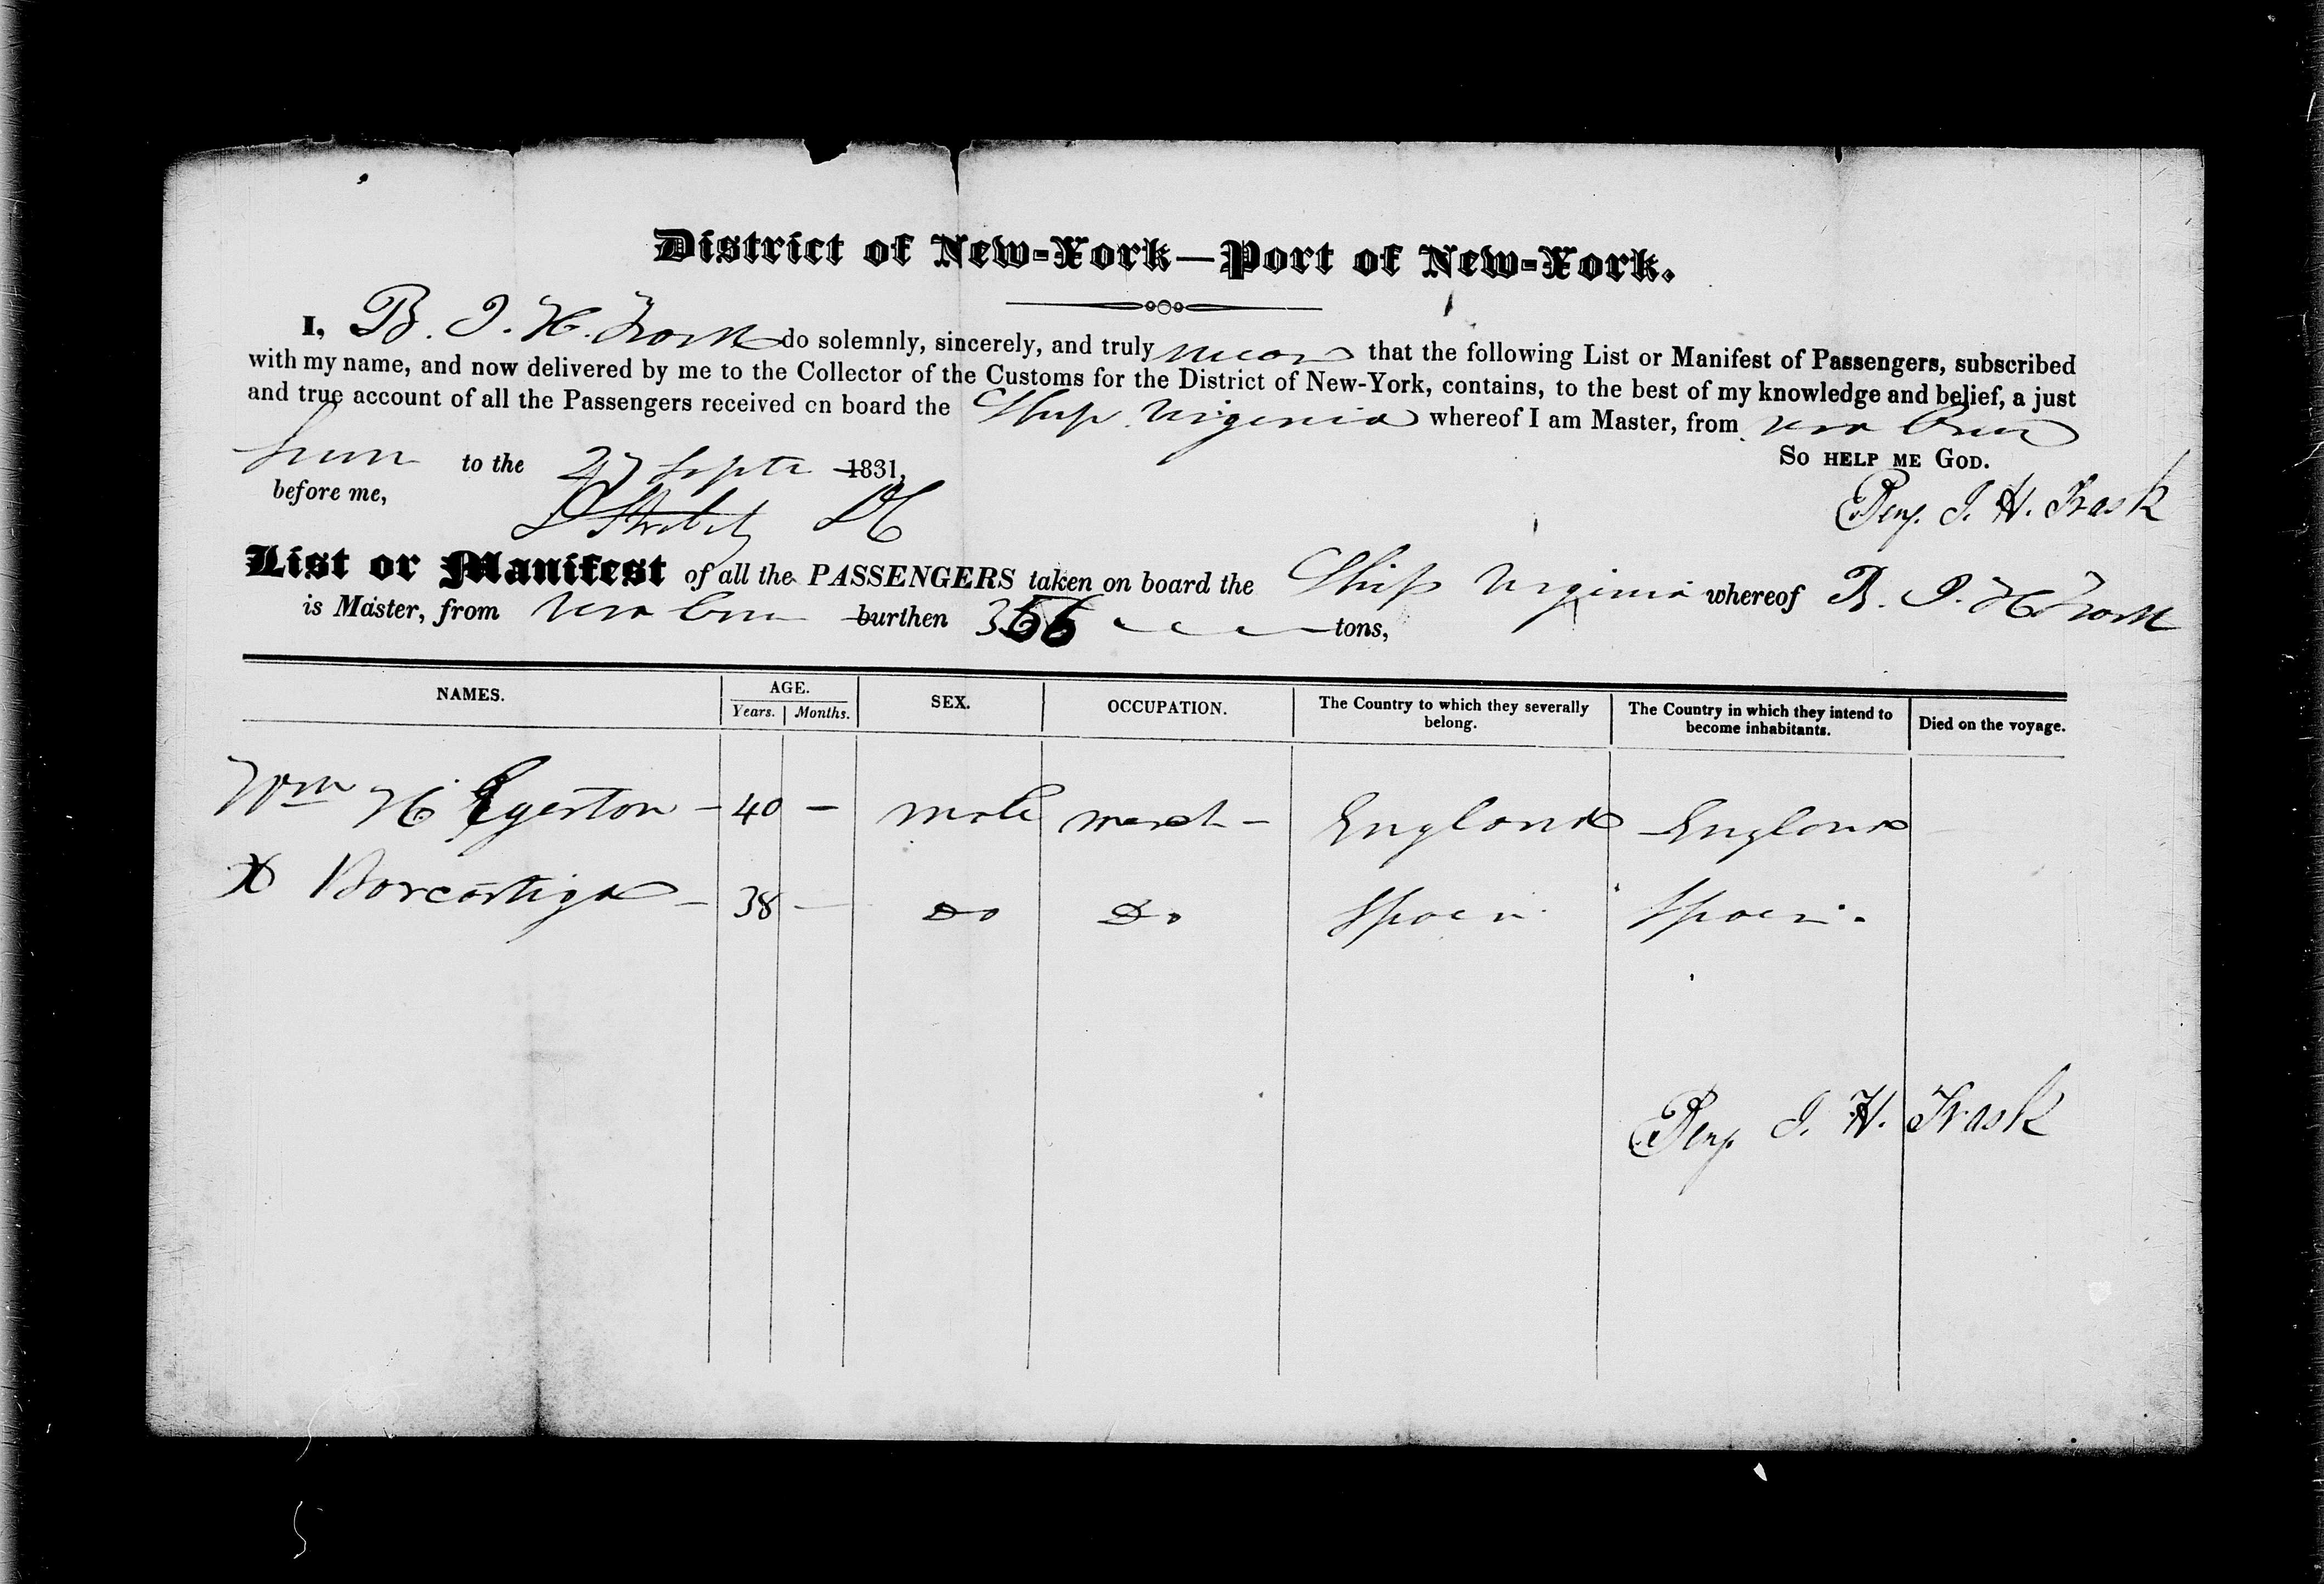 District of New-York—Port of New-York.
I, B. I. H. Trask do solemnly, sincerely, and truly swear that the following List or Manifest of Passengers, subscribed
with my name, and now delivered by me to the Collector of the Customs for the District of New-York, contains, to the best of my knowledge and belief, a just
and true account of all the Passengers received on board the Ship Virginia whereof I am Master, from Vera Cruz
So help me God.
Sworn to the 27 Septr 1831,
before me,
Benj. I. H. Trask
List or Manifest of all the PASSENGERS taken on board the Ship Virginia whereof B. I. H Trask
is Master, from Vera Cruz burthen 356 tons,
NAMES. AGE. Years. Months. SEX. OCCUPATION. The Country to which they severally belong. The Country in which they intend to become inhabitants. Died on the voyage.
Wm H Egerton - 40 - male merch - England England
Borcartiga - 38 - Do Do Spain Spain.
Benj. I. H. Trask